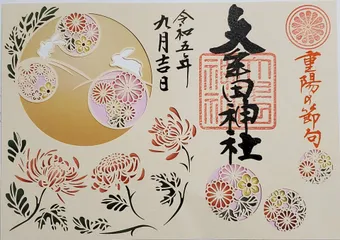 重陽の節句
大牟田神社
令和五年
九月吉日